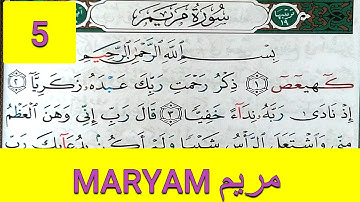 5
سُورَةُ مَرْيَمَ
ترتيبها ١٩
بِسْمِ اللَّهِ الرَّحْمَٰنِ الرَّحِيمِ
كٓهيعٓصٓ ١ ذِكْرُ رَحْمَتِ رَبِّكَ عَبْدَهُۥ زَكَرِيَّآ ٢
إِذْ نَادَىٰ رَبَّهُۥ نِدَآءً خَفِيًّا ٣ قَالَ رَبِّ إِنِّى وَهَنَ ٱلْعَظْمُ
مِنِّى وَٱشْتَعَلَ ٱلرَّأْسُ شَيْبًا وَلَمْ أَكُنۢ بِدُعَآئِكَ رَبِّ
MARYAM مريم